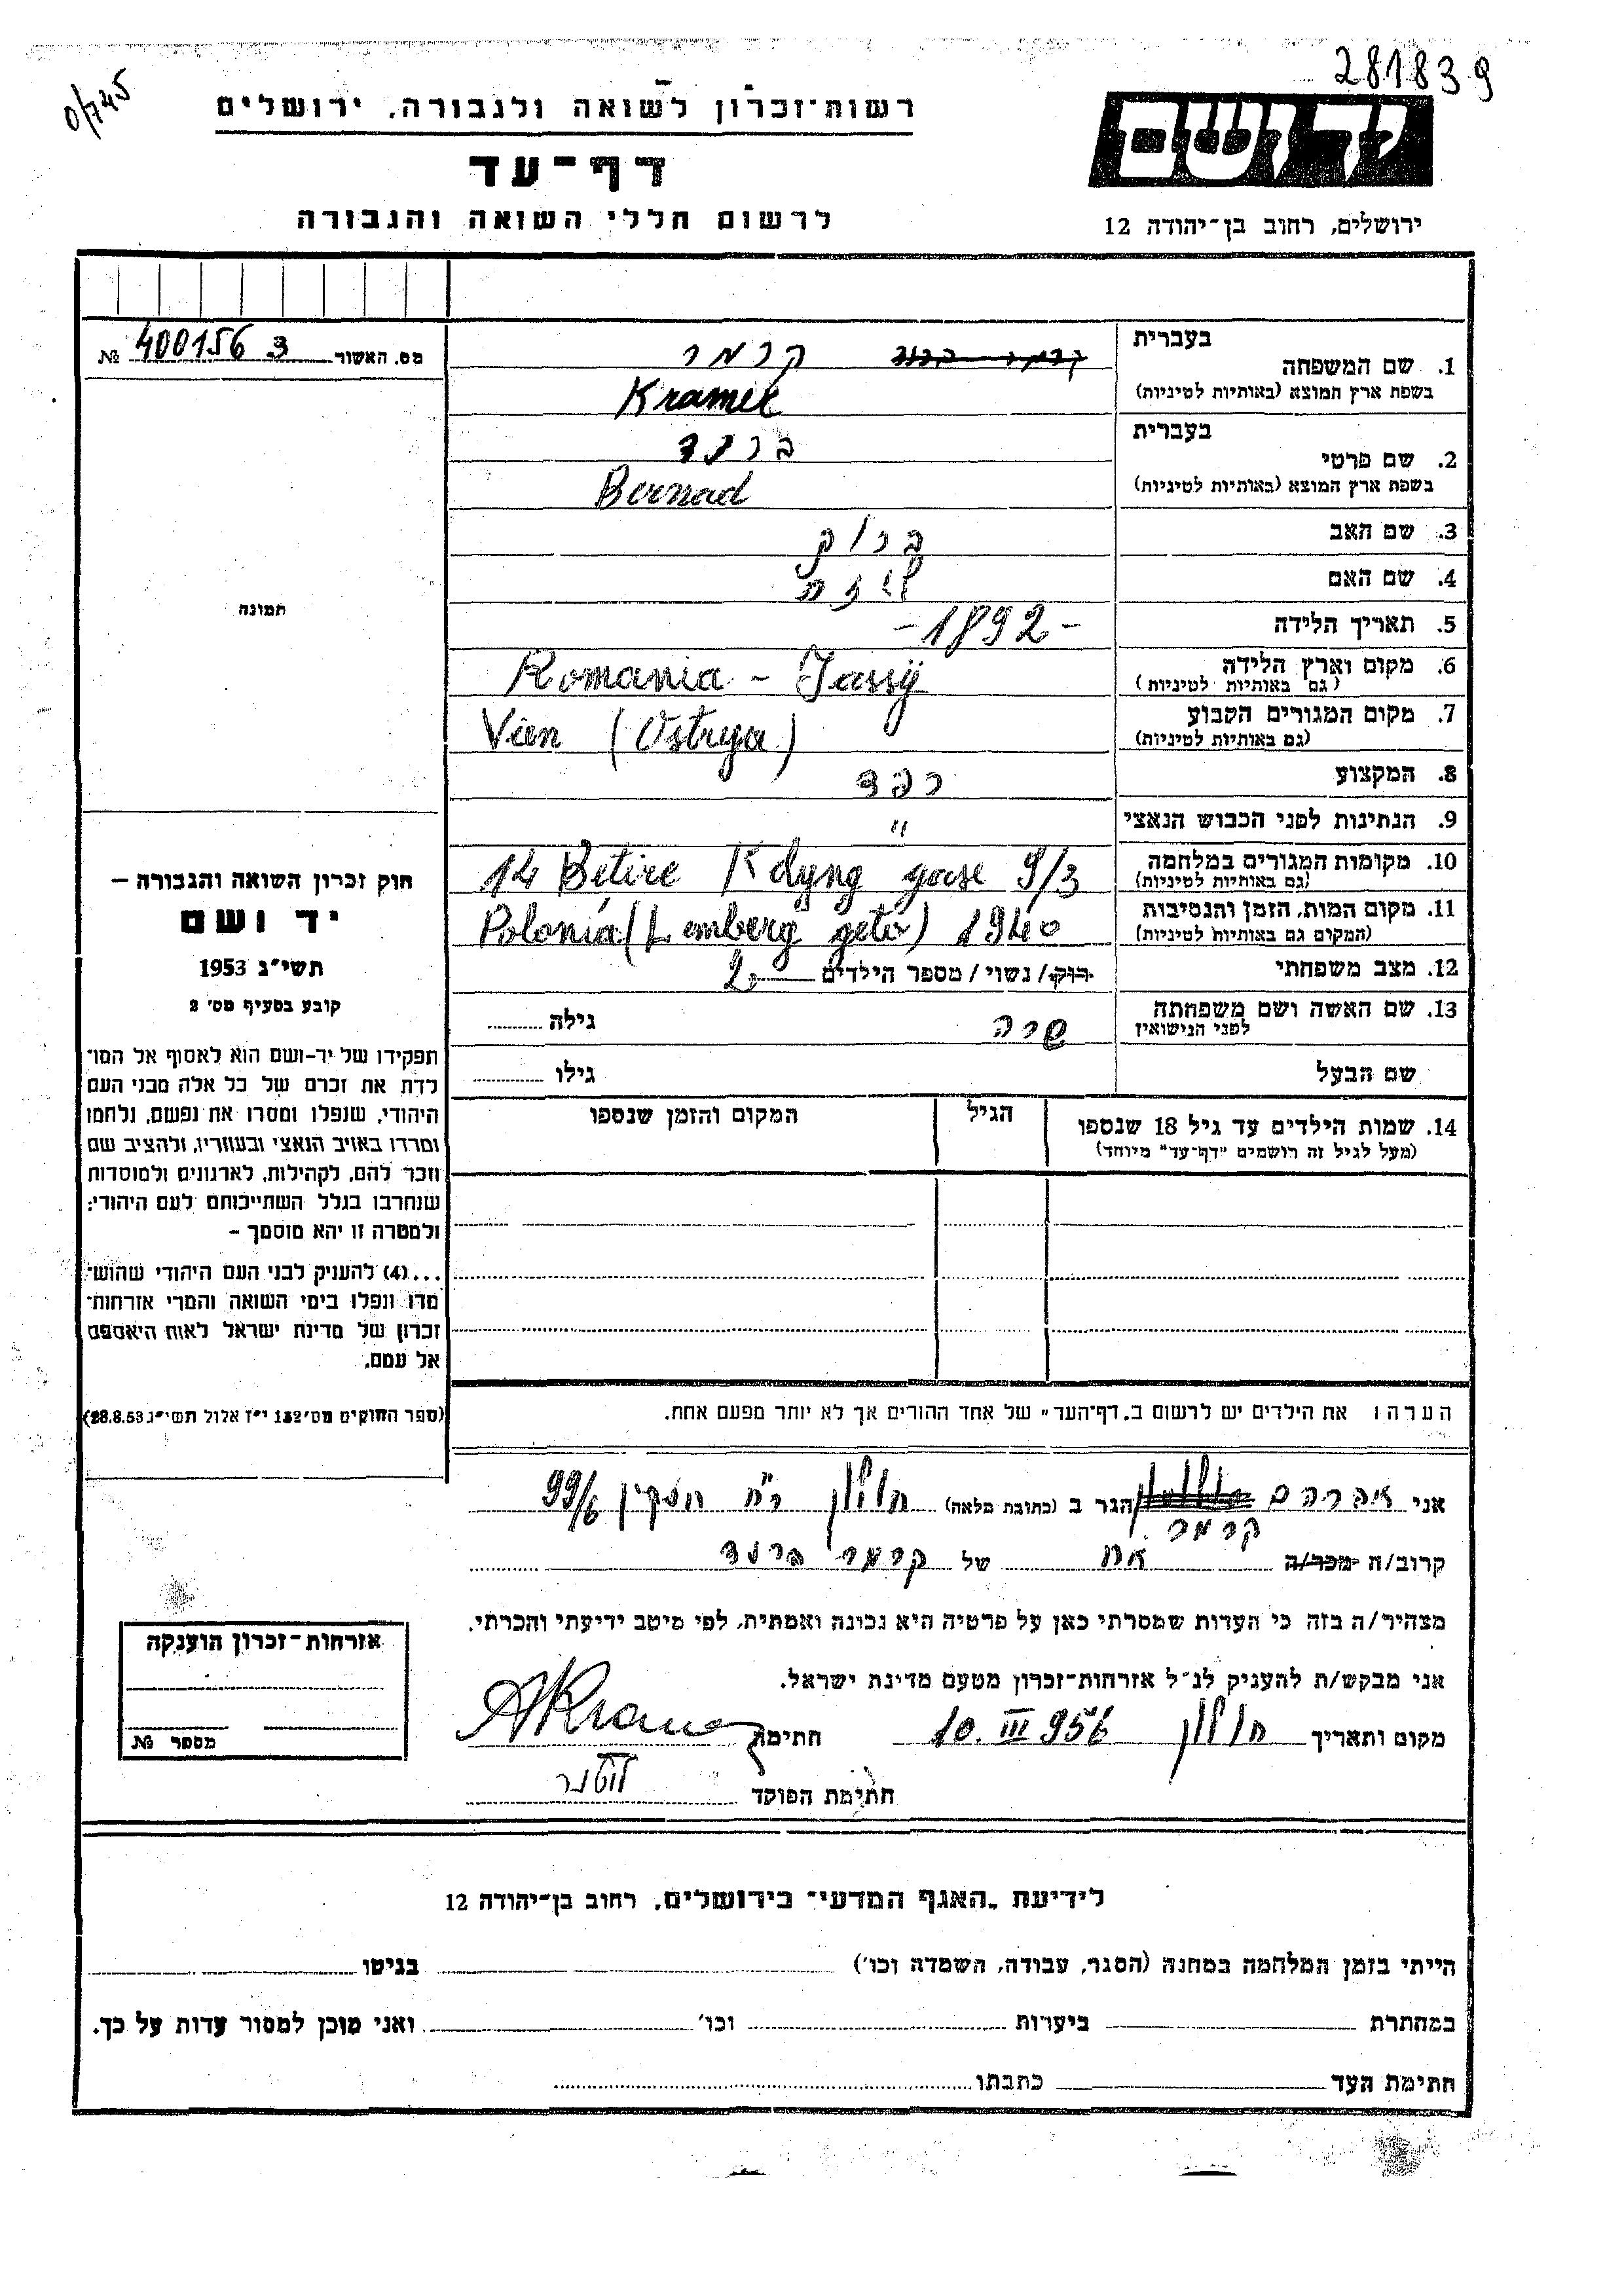 281839
0/745
רשות־זכרון לשואה ולגבורה, ירושלים
דף־עד
לרשום חללי השואה והגבורה
יד ושם
ירושלים, רחוב בן־יהודה 12
מס. האשור 400156 3 №
תמונה
חוק זכרון השואה והגבורה –
יד ושם
תשי״ג 1953
קובע בסעיף מס׳ 2
תפקידו של יד-ושם הוא לאסוף אל המו־
לדת את זכרם של כל אלה מבני העם
היהודי, שנפלו ומסרו את נפשם, נלחמו
ומרדו באויב הנאצי ובעוזריו, ולהציב שם
וזכר להם, לקהילות, לארגונים ולמוסדות
שנחרבו בגלל השתייכותם לעם היהודי;
ולמטרה זו יהא מוסמך –
...(4) להעניק לבני העם היהודי שהוש־
מדו ונפלו בימי השואה והמרי אזרחות־
זכרון של מדינת ישראל לאות היאספם
אל עמם.
(ספר החוקים מס׳ 132 י״ז אלול תשי״ג 28.8.53)
בעברית
1. שם המשפחה קרמר
בשפת ארץ המוצא (באותיות לטיניות) Kramer
בעברית
2. שם פרטי ברנד
בשפת ארץ המוצא (באותיות לטיניות) Bernad
3. שם האב ברוך
4. שם האם
5. תאריך הלידה -1892-
6. מקום וארץ הלידה Romania - Jassy
(גם באותיות לטיניות)
7. מקום המגורים הקבוע Vien (Ostrya)
(גם באותיות לטיניות)
8. המקצוע רפד
9. הנתינות לפני הכבוש הנאצי "
10. מקומות המגורים במלחמה 14 Betire Kdyng gase 9/3
(גם באותיות לטיניות)
11. מקום המות, הזמן והנסיבות Polonia (Lemberg geto) 1940
(המקום גם באותיות לטיניות)
12. מצב משפחתי רוק/ נשוי / מספר הילדים 2
13. שם האשה ושם משפחתה שרה גילה
לפני הנישואין
שם הבעל גילו
14. שמות הילדים עד גיל 18 שנספו הגיל המקום והזמן שנספו
(מעל לגיל זה רושמים "דף־עד" מיוחד)
הערה: את הילדים יש לרשום ב„דף־העד״ של אחד ההורים אך לא יותר מפעם אחת.
אני אברהם הגר ב (כתובת מלאה) חולון רח 99/6
קרמר
קרוב/ה מכר/ה אח של קרמר ברנד
מצהיר/ה בזה כי העדות שמסרתי כאן על פרטיה היא נכונה ואמתית, לפי מיטב ידיעתי והכרתי.
אני מבקש/ת להעניק לנ״ל אזרחות־זכרון מטעם מדינת ישראל.
מקום ותאריך חולון 10. III 956 חתימה AKramer
חתימת הפוקד
אזרחות־זכרון הוענקה
מספר №
לידיעת „האגף המדעי״ בירושלים, רחוב בן־יהודה 12
הייתי בזמן המלחמה במחנה (הסגר, עבודה, השמדה וכו׳) בגיטו
במחתרת ביערות וכו׳ ואני מוכן למסור עדות על כך.
חתימת העד כתבתו